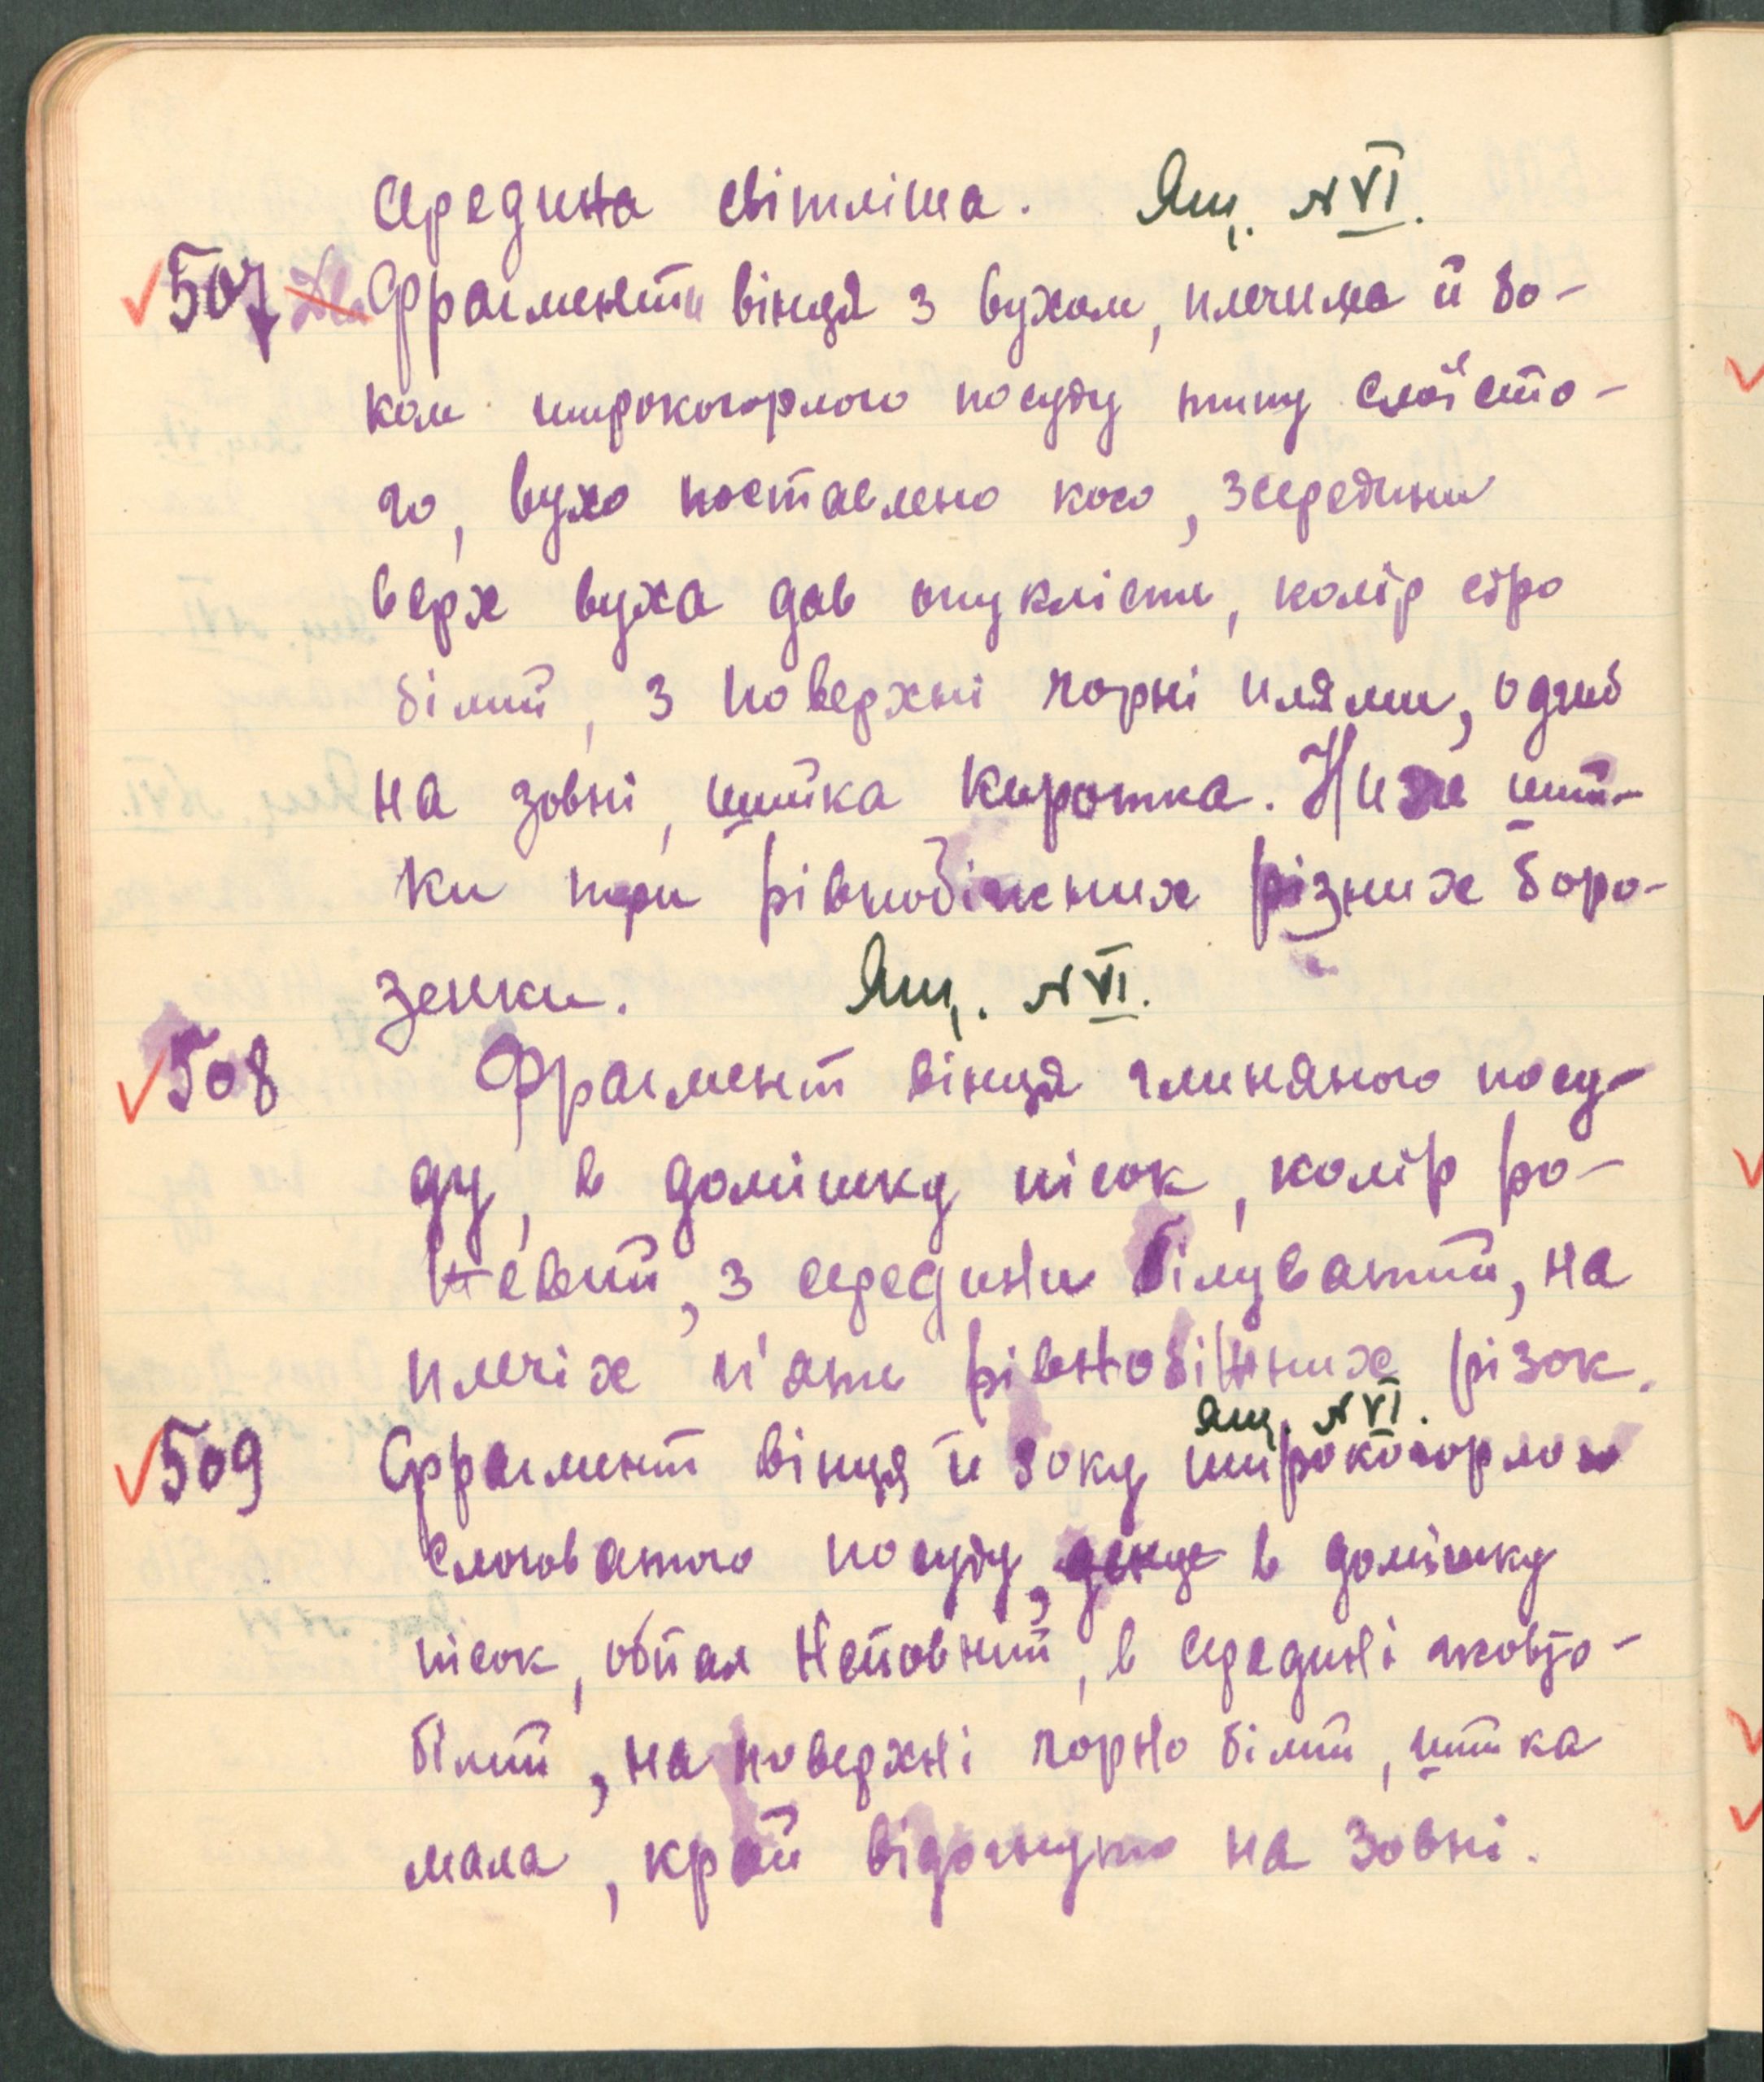 середина світліша. Ящ. № VI.
507 Фрагменти вінця з вухом, плечима й бо-
ком широкогорлого посуду типу слоїсто-
го, вухо поставлено косо, зсередини
верх вуха дав опуклість, колір сіро
білий, з поверхні чорні плями, одгиб
на зовні, шийка коротка. Низче ший-
ки три рівнобіжних різних боро-
зенки. Ящ. № VI.
508 Фрагмент вінця глиняного посу-
ду, в домішку пісок, колір ро-
жевий, з середини білуватий, на
плечіх п'ять рівнобіжних різок.
Ящ. № VI.
509 Фрагмент вінця й боку широкогорлого
слоюватого посуду, в домішку
пісок, обпал неповний, в середині жовто-
білий, на поверхні чорно білий, шийка
мала, край відогнуто на зовні.